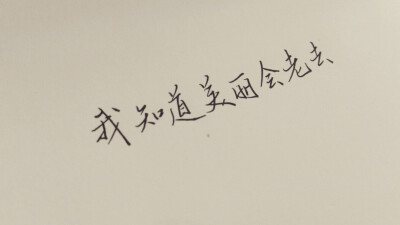 我知道美丽会老去